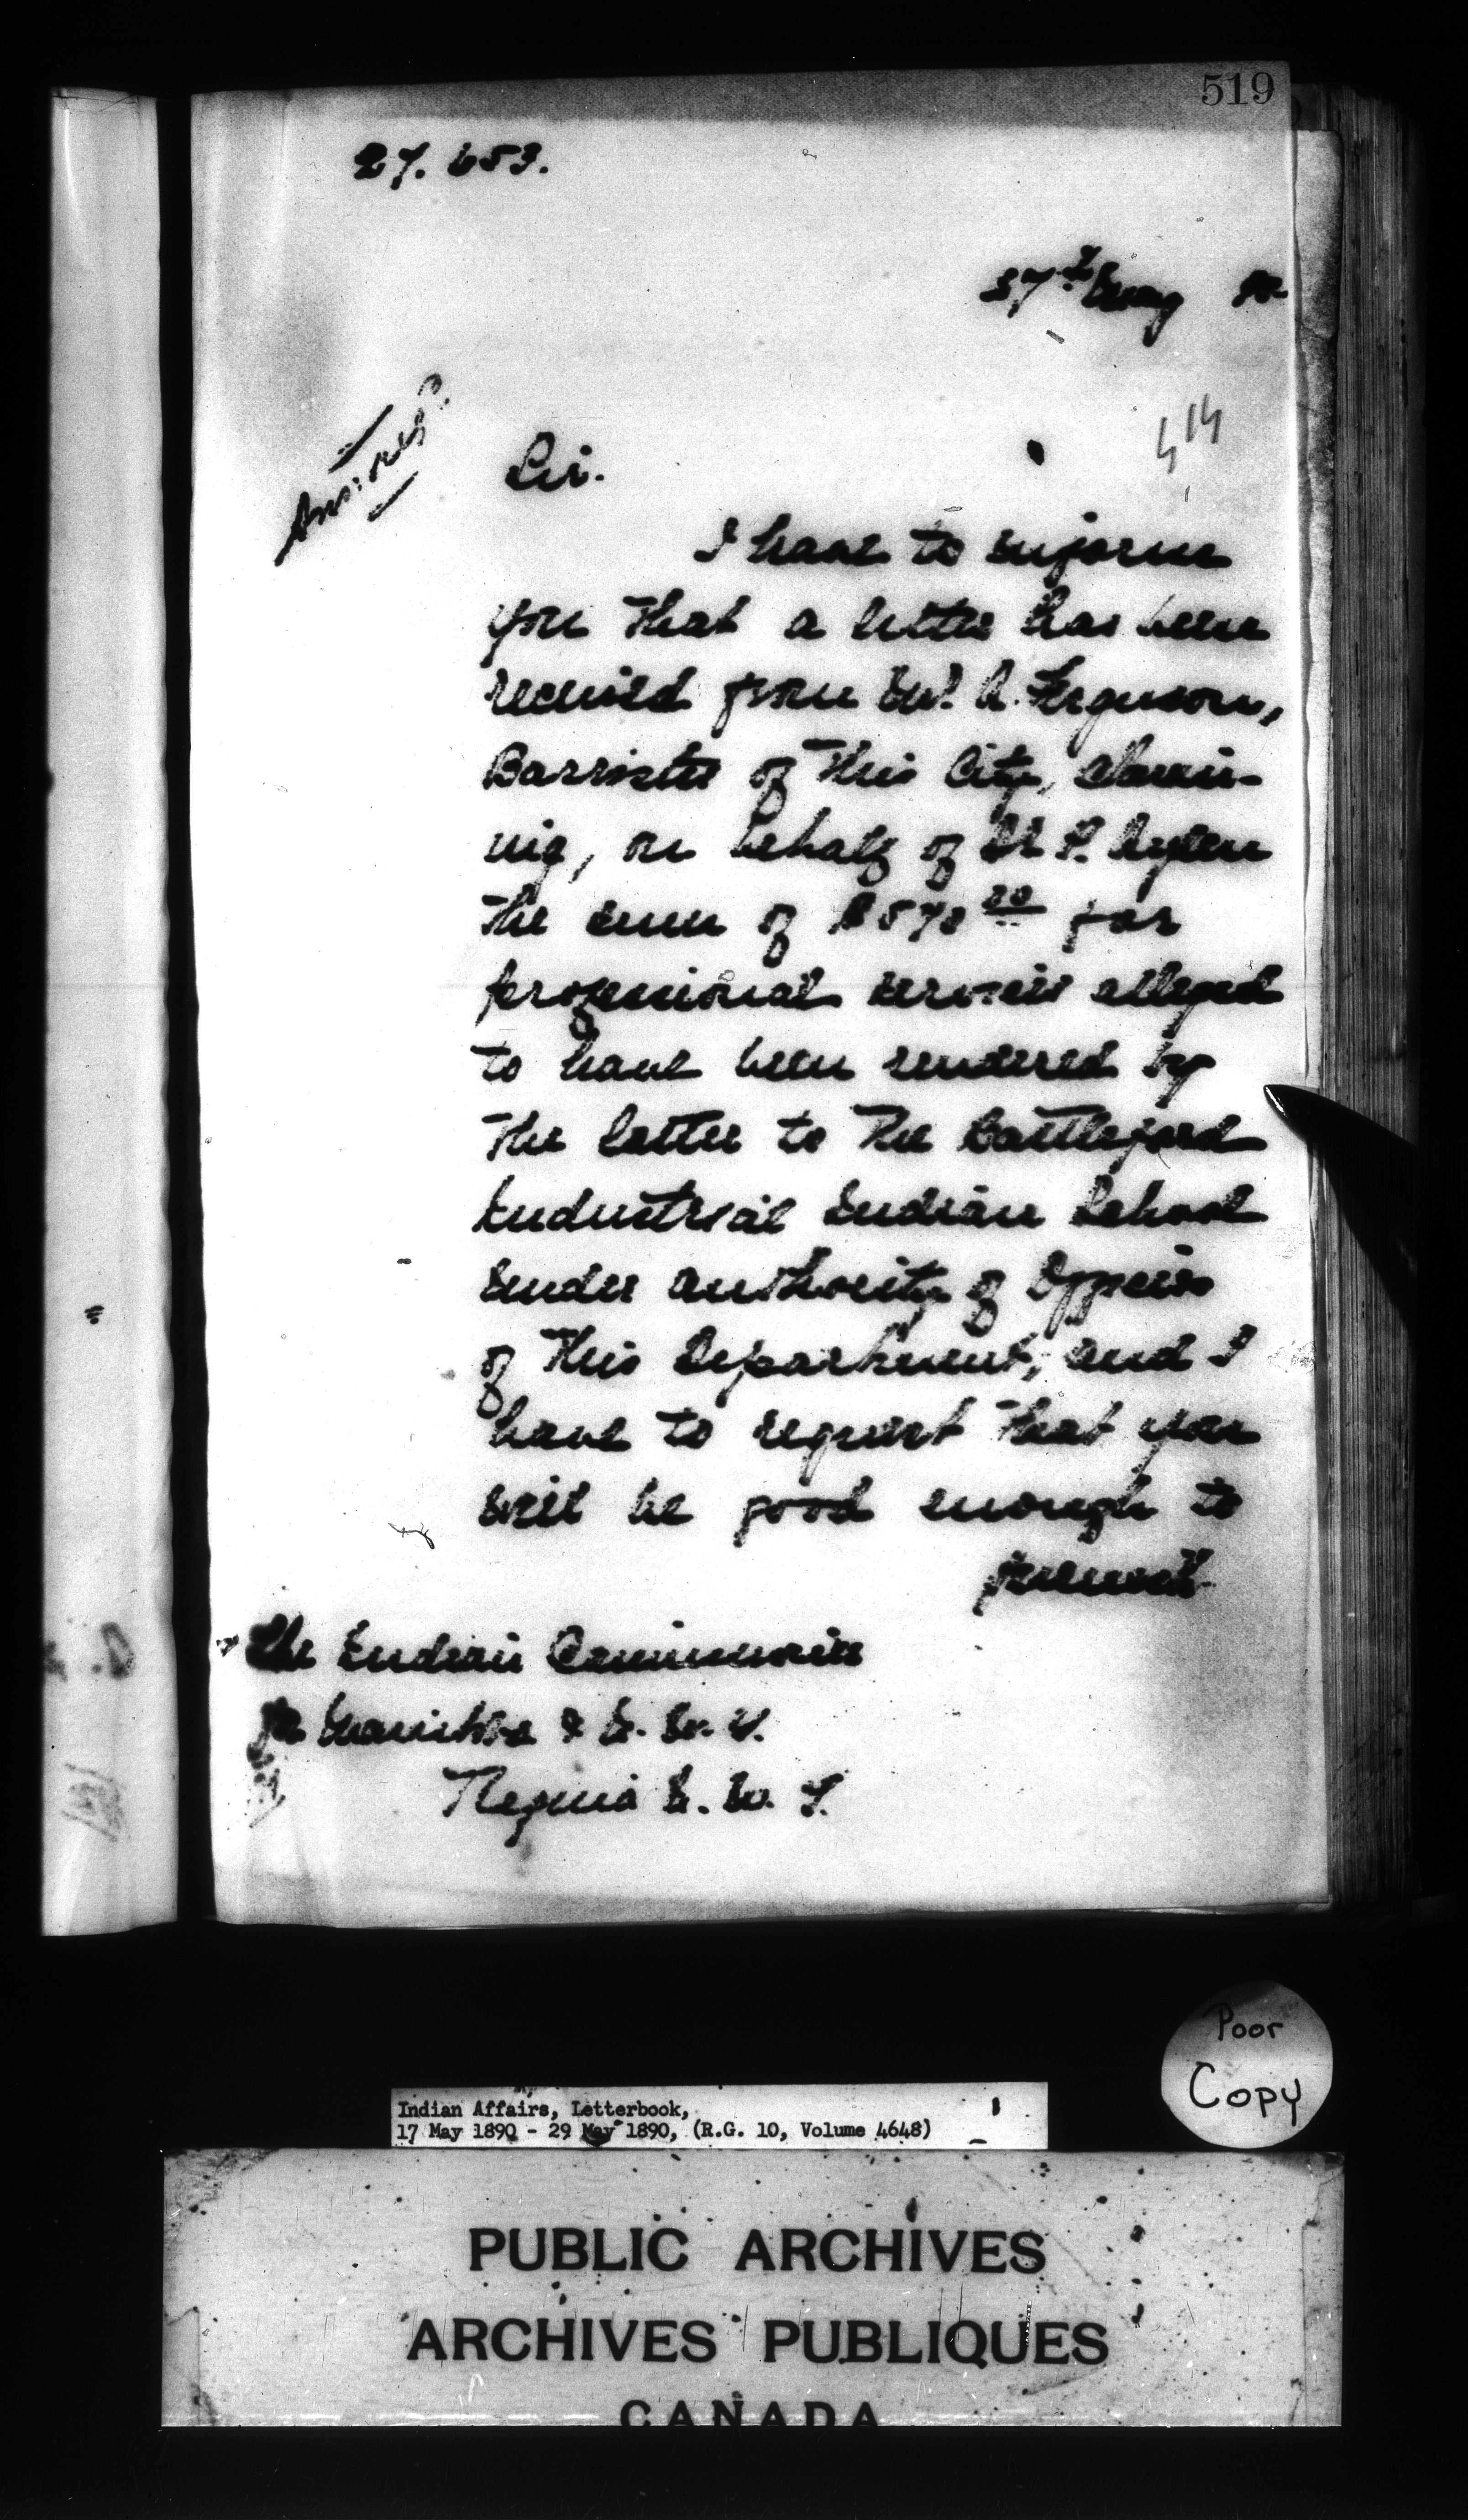 519
27.653.
27th May 90
Sir.
I have to inform
you that a letter has been
received from Mr. A. Ferguson,
Barrister of this City, claim-
ing, on behalf of P. Aylen
the sum of for
professional services alleged
to have been rendered by
the latter to the Battleford
Industrial Indian School
under authority of Officers
of this Department, and I
have to request that you
will be good enough to
furnish
The Indian Commissioner
for Manitoba & N. W. T.
Regina N. W. T.
Poor
Copy
Indian Affairs, Letterbook,
17 May 1890 - 29 May 1890, (R.G. 10, Volume 4648)
PUBLIC ARCHIVES
ARCHIVES PUBLIQUES
CANADA